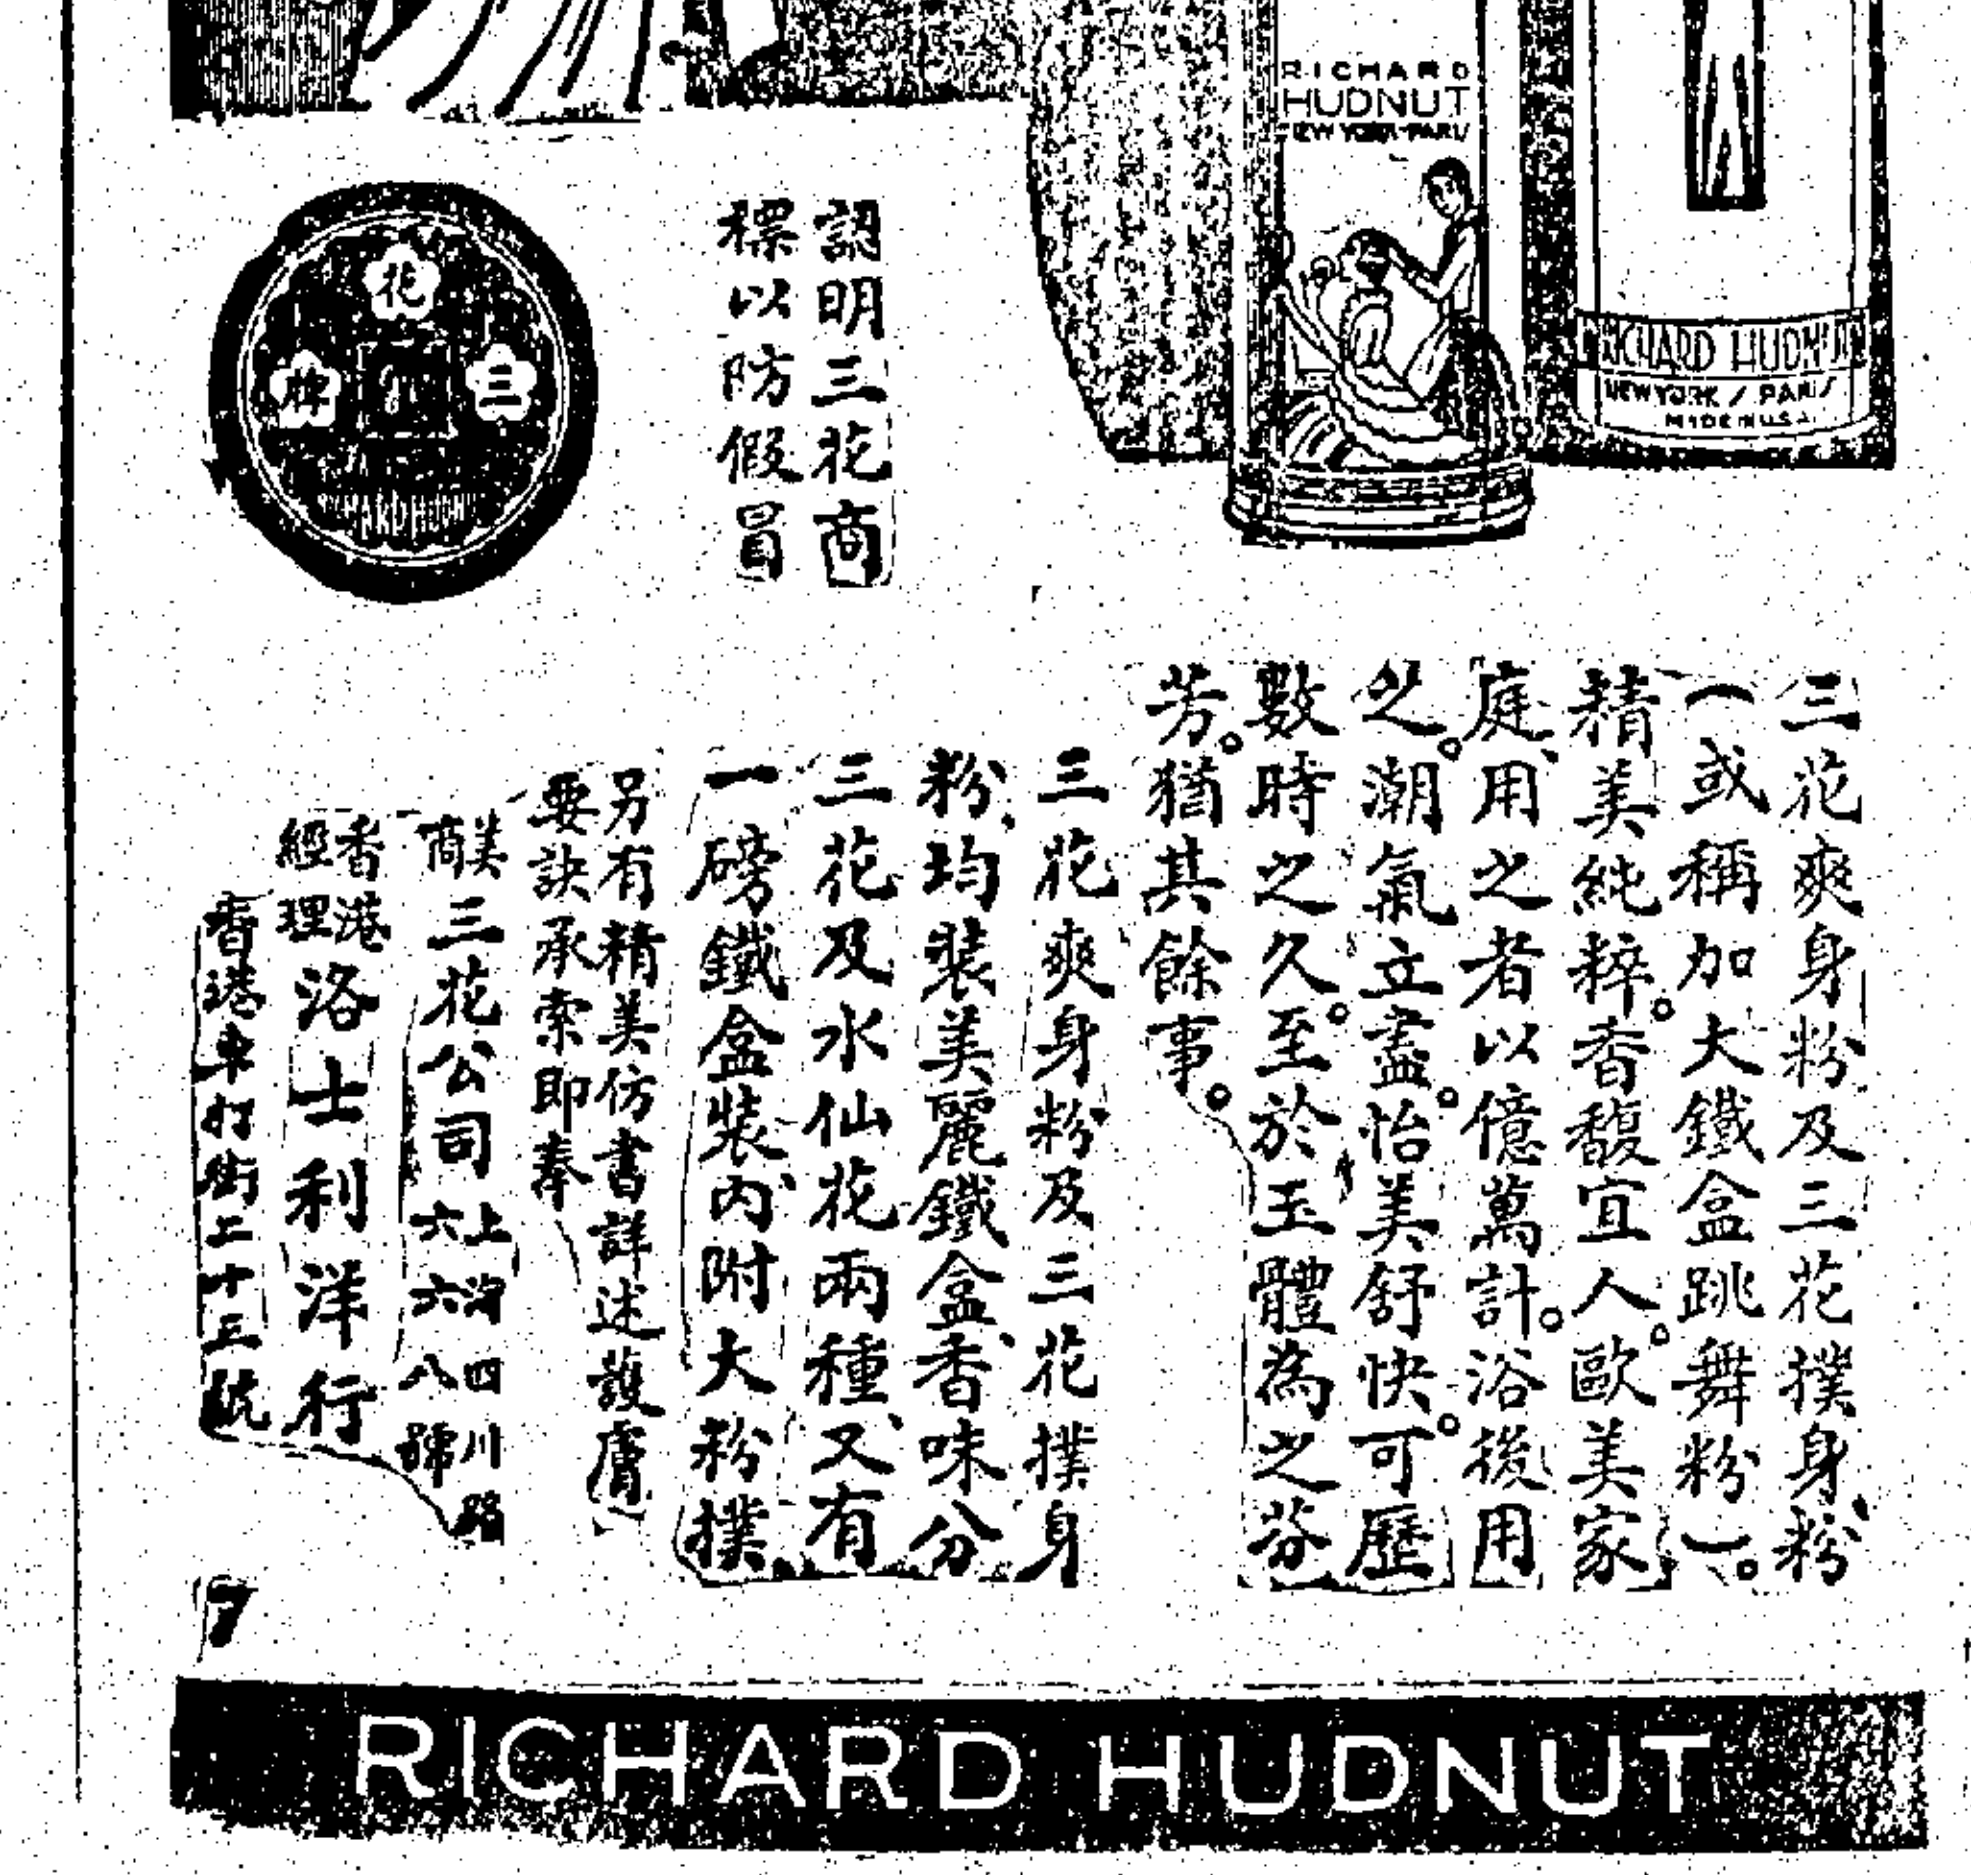 RICHARD
HUDNUT
NEW YORK-PARIS
RICHARD HUDNUT
NEW YORK / PARIS
MADE IN U.S.A.
認明三花商
標以防假冒
三花牌
RICHARD HUDNUT
三花爽身粉及三花撲身粉、
（或稱加大鐵盒跳舞粉）。
精美純粹。香馥宜人。歐美家
庭、用之者以億萬計。浴後用
之。潮氣立盡。怡美舒快。可歷
數時之久。至於玉體為之芬
芳。猶其餘事。
三花爽身粉及三花撲身
粉、均裝美麗鐵盒、香味分
三花及水仙花兩種、又有
一磅鐵盒裝、內附大粉撲
另有精美仿書詳述護膚
要訣承索即奉
美商三花公司上海四川路六六八號
香港經理洛士利洋行
香港車打街二十三號
7
RICHARD HUDNUT